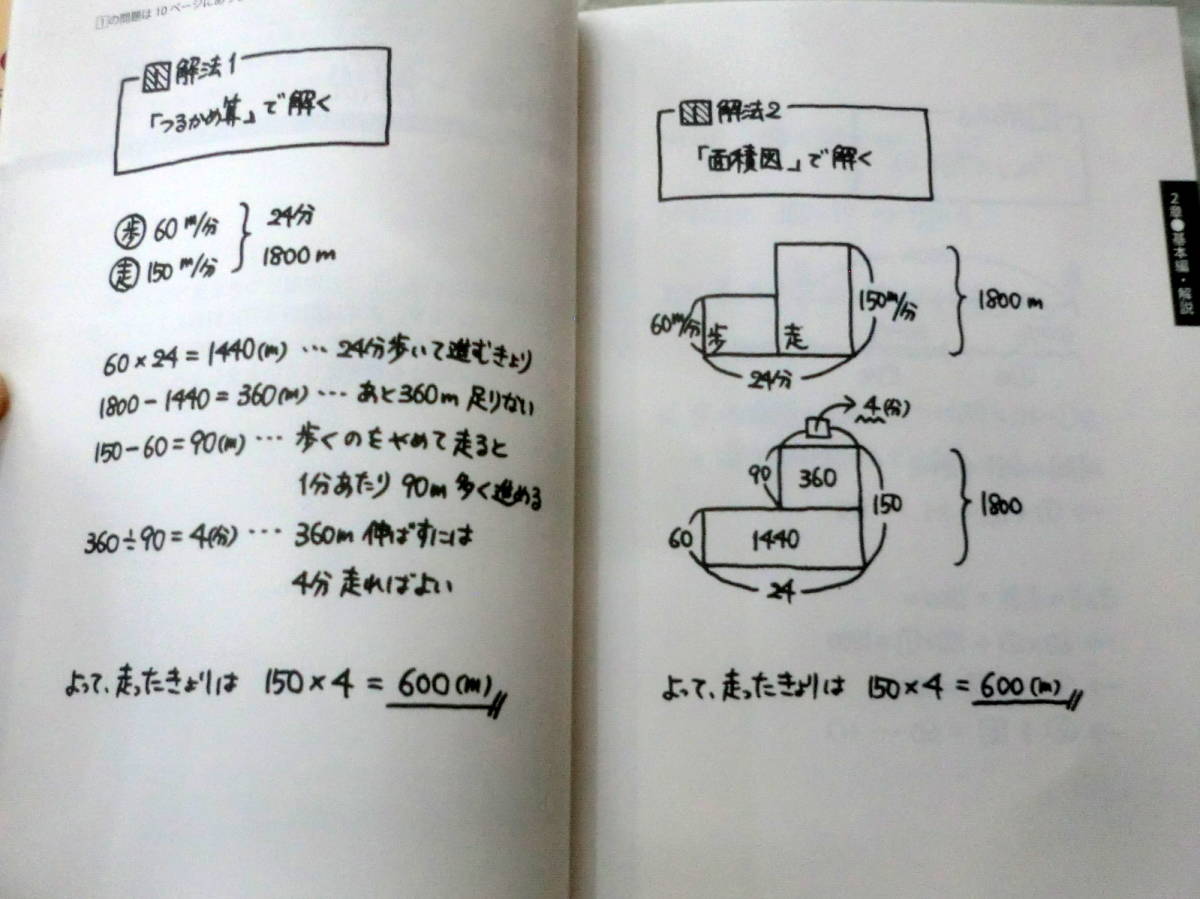 1の問題は10ページにあ
1 解法1
「つるかめ算」で解く
歩 60m/分
走 150m/分
24分
1800m
60×24=1440(m) … 24分歩いて進むきょり
1800-1440=360(m) … あと360m足りない
150-60=90(m) … 歩くのをやめて走ると
1分あたり 90m 多く進める
360÷90=4(分) … 360m 伸ばすには
4分 走ればよい
よって、走ったきょりは 150×4=600(m)
1 解法2
「面積図」で解く
60m/分
歩
走
150m/分
1800m
24分
4(分)
90
360
150
60
1440
1800
24
よって、走ったきょりは 150×4=600(m)
2章●基本編・解説